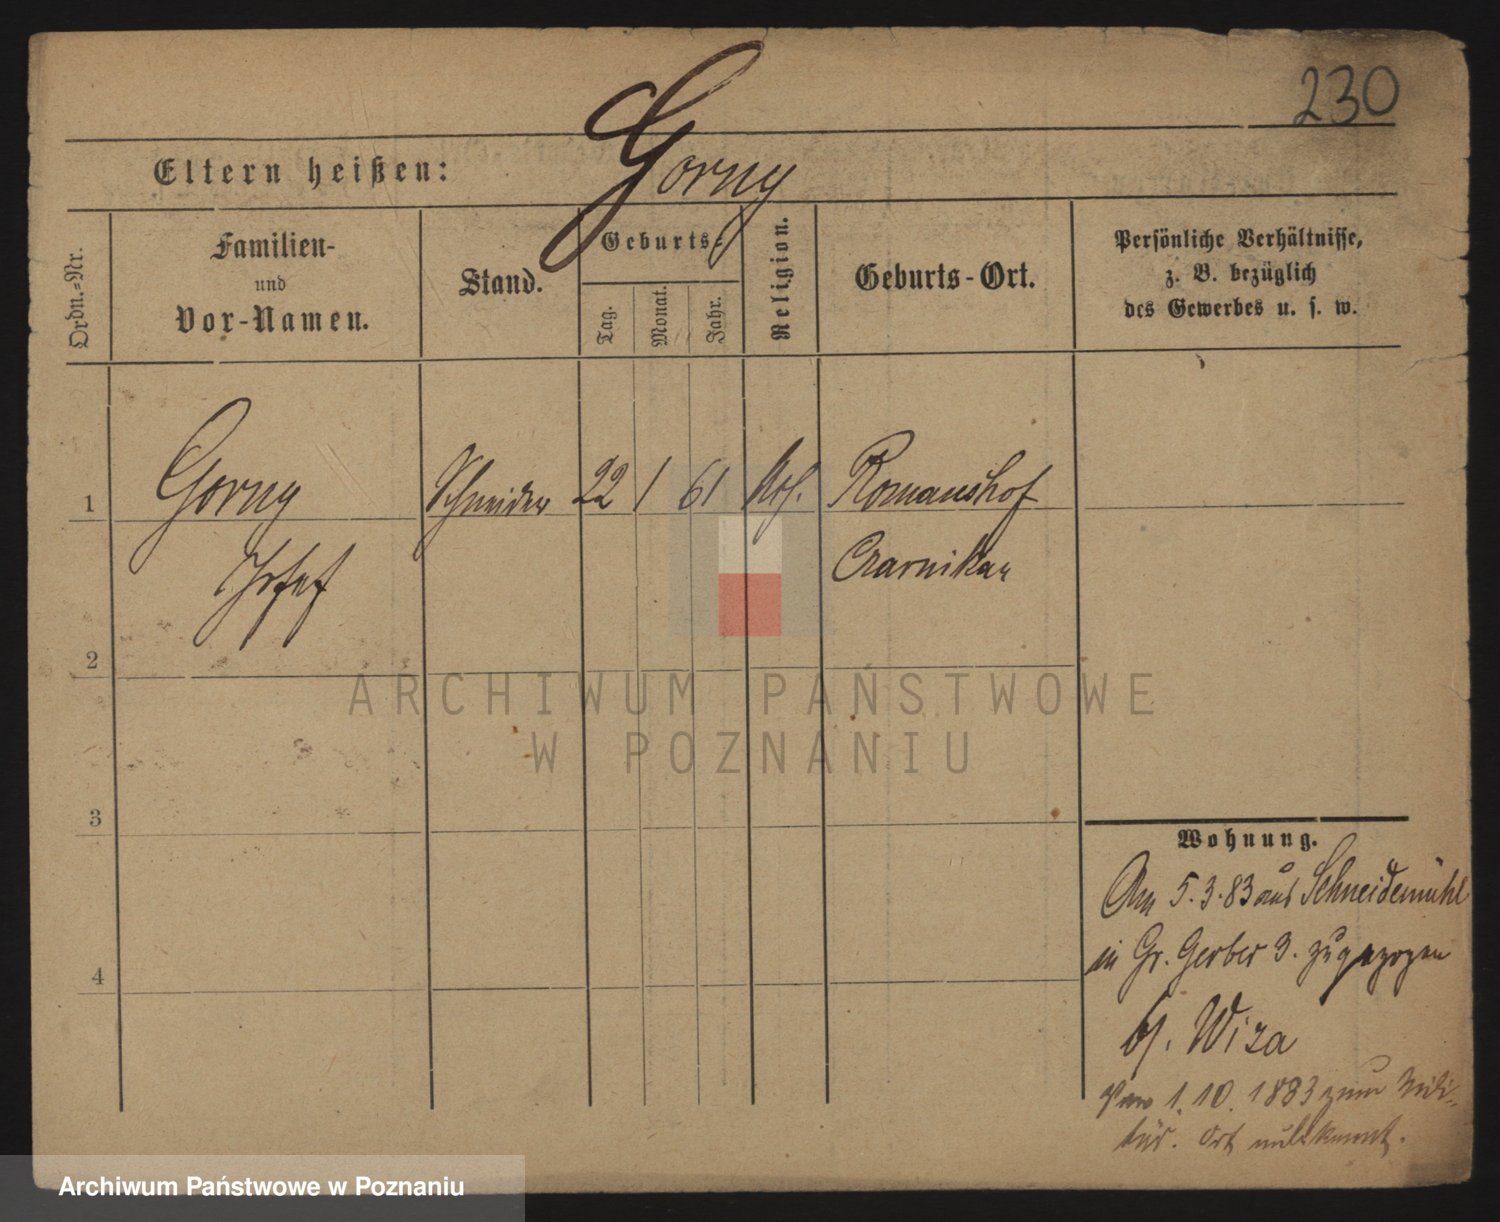 230
Gorny
Eltern heißen:
Ordn.-Nr.
Familien-
und
Vor-Namen.
Stand.
Geburts-
Tag.
Monat.
Jahr.
Religion.
Geburts-Ort.
Persönliche Verhältnisse,
z. B. bezüglich
des Gewerbes u. s. w.
1
Gorny
Josef
Schneider
22
1
61
Romanshof
Czarnikau
2
3
4
Wohnung.
Am 5.3.83 aus Schneidemühl
in Gr. Gerber 3. zugezogen
bf. Wiza
1.10.1883 zum Mili-
tär. Ort unbekannt.
ARCHIWUM PAŃSTWOWE
W POZNANIU
Archiwum Państwowe w Poznaniu